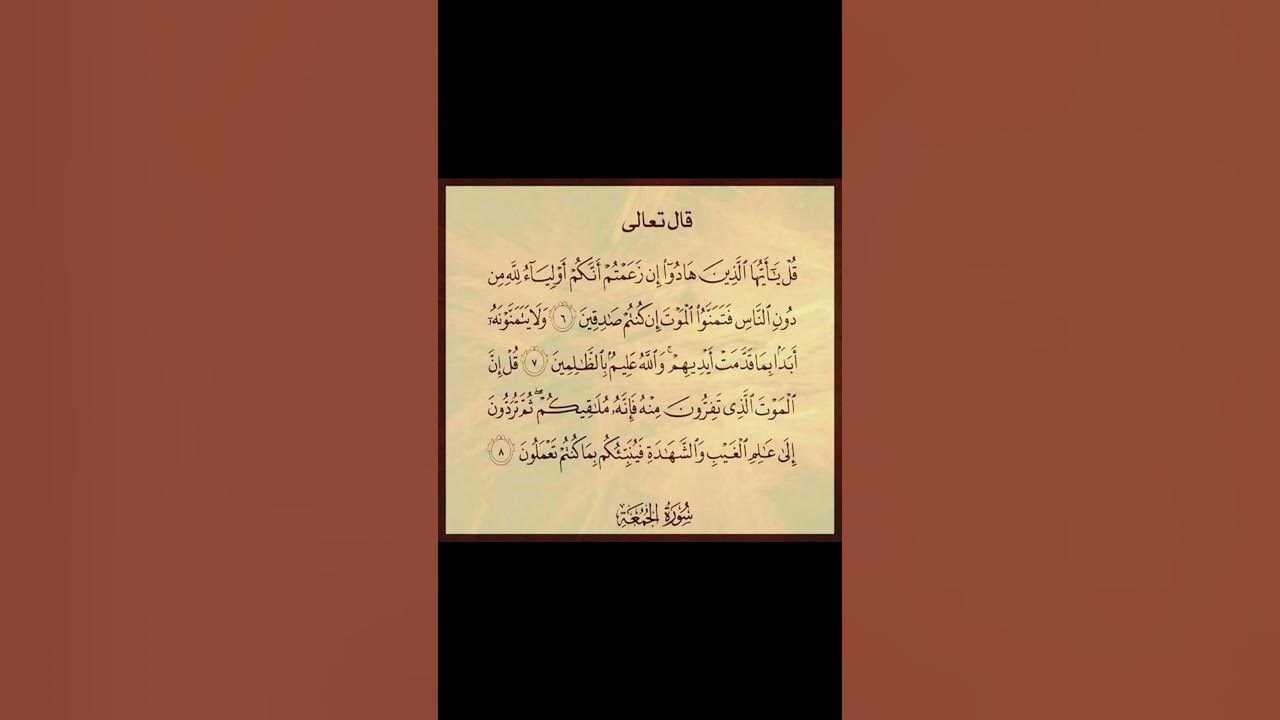 قال تعالى
قُلْ يَٰٓأَيُّهَا ٱلَّذِينَ هَادُوٓا۟ إِن زَعَمْتُمْ أَنَّكُمْ أَوْلِيَآءُ لِلَّهِ مِن
دُونِ ٱلنَّاسِ فَتَمَنَّوُا۟ ٱلْمَوْتَ إِن كُنتُمْ صَٰدِقِينَ ٦ وَلَا يَتَمَنَّوْنَهُۥٓ
أَبَدًۢا بِمَا قَدَّمَتْ أَيْدِيهِمْ ۚ وَٱللَّهُ عَلِيمٌۢ بِٱلظَّٰلِمِينَ ٧ قُلْ إِنَّ
ٱلْمَوْتَ ٱلَّذِى تَفِرُّونَ مِنْهُ فَإِنَّهُۥ مُلَٰقِيكُمْ ۖ ثُمَّ تُرَدُّونَ
إِلَىٰ عَٰلِمِ ٱلْغَيْبِ وَٱلشَّهَٰدَةِ فَيُنَبِّئُكُم بِمَا كُنتُمْ تَعْمَلُونَ ٨
سُورَةُ الجُمُعَةِ